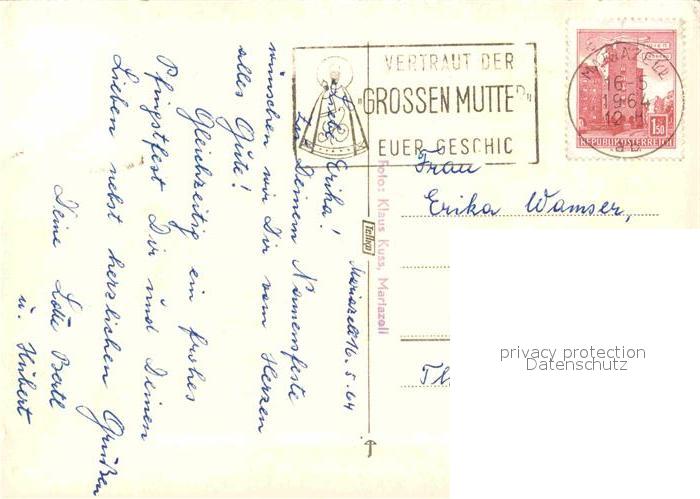 Mariazell 16.5.64
Liebe Erika!
Zu Deinem Namensfeste
wünschen wir Dir vom Herzen
alles Gute!
Gleichzeitig ein frohes
Pfingstfest Dir und Deinen
Lieben nebst herzlichen Grüßen
Deine Lotte Bertl
u. Hubert
VERTRAUT DER
"GROSSEN MUTTER"
EUER GESCHIC
MARIAZELL
16-5
1964
REPUBLIK ÖSTERREICH
1.50
WIEN
Foto: Klaus Kuss, Mariazell
Frau
Erika Wamser,
privacy protection
Datenschutz